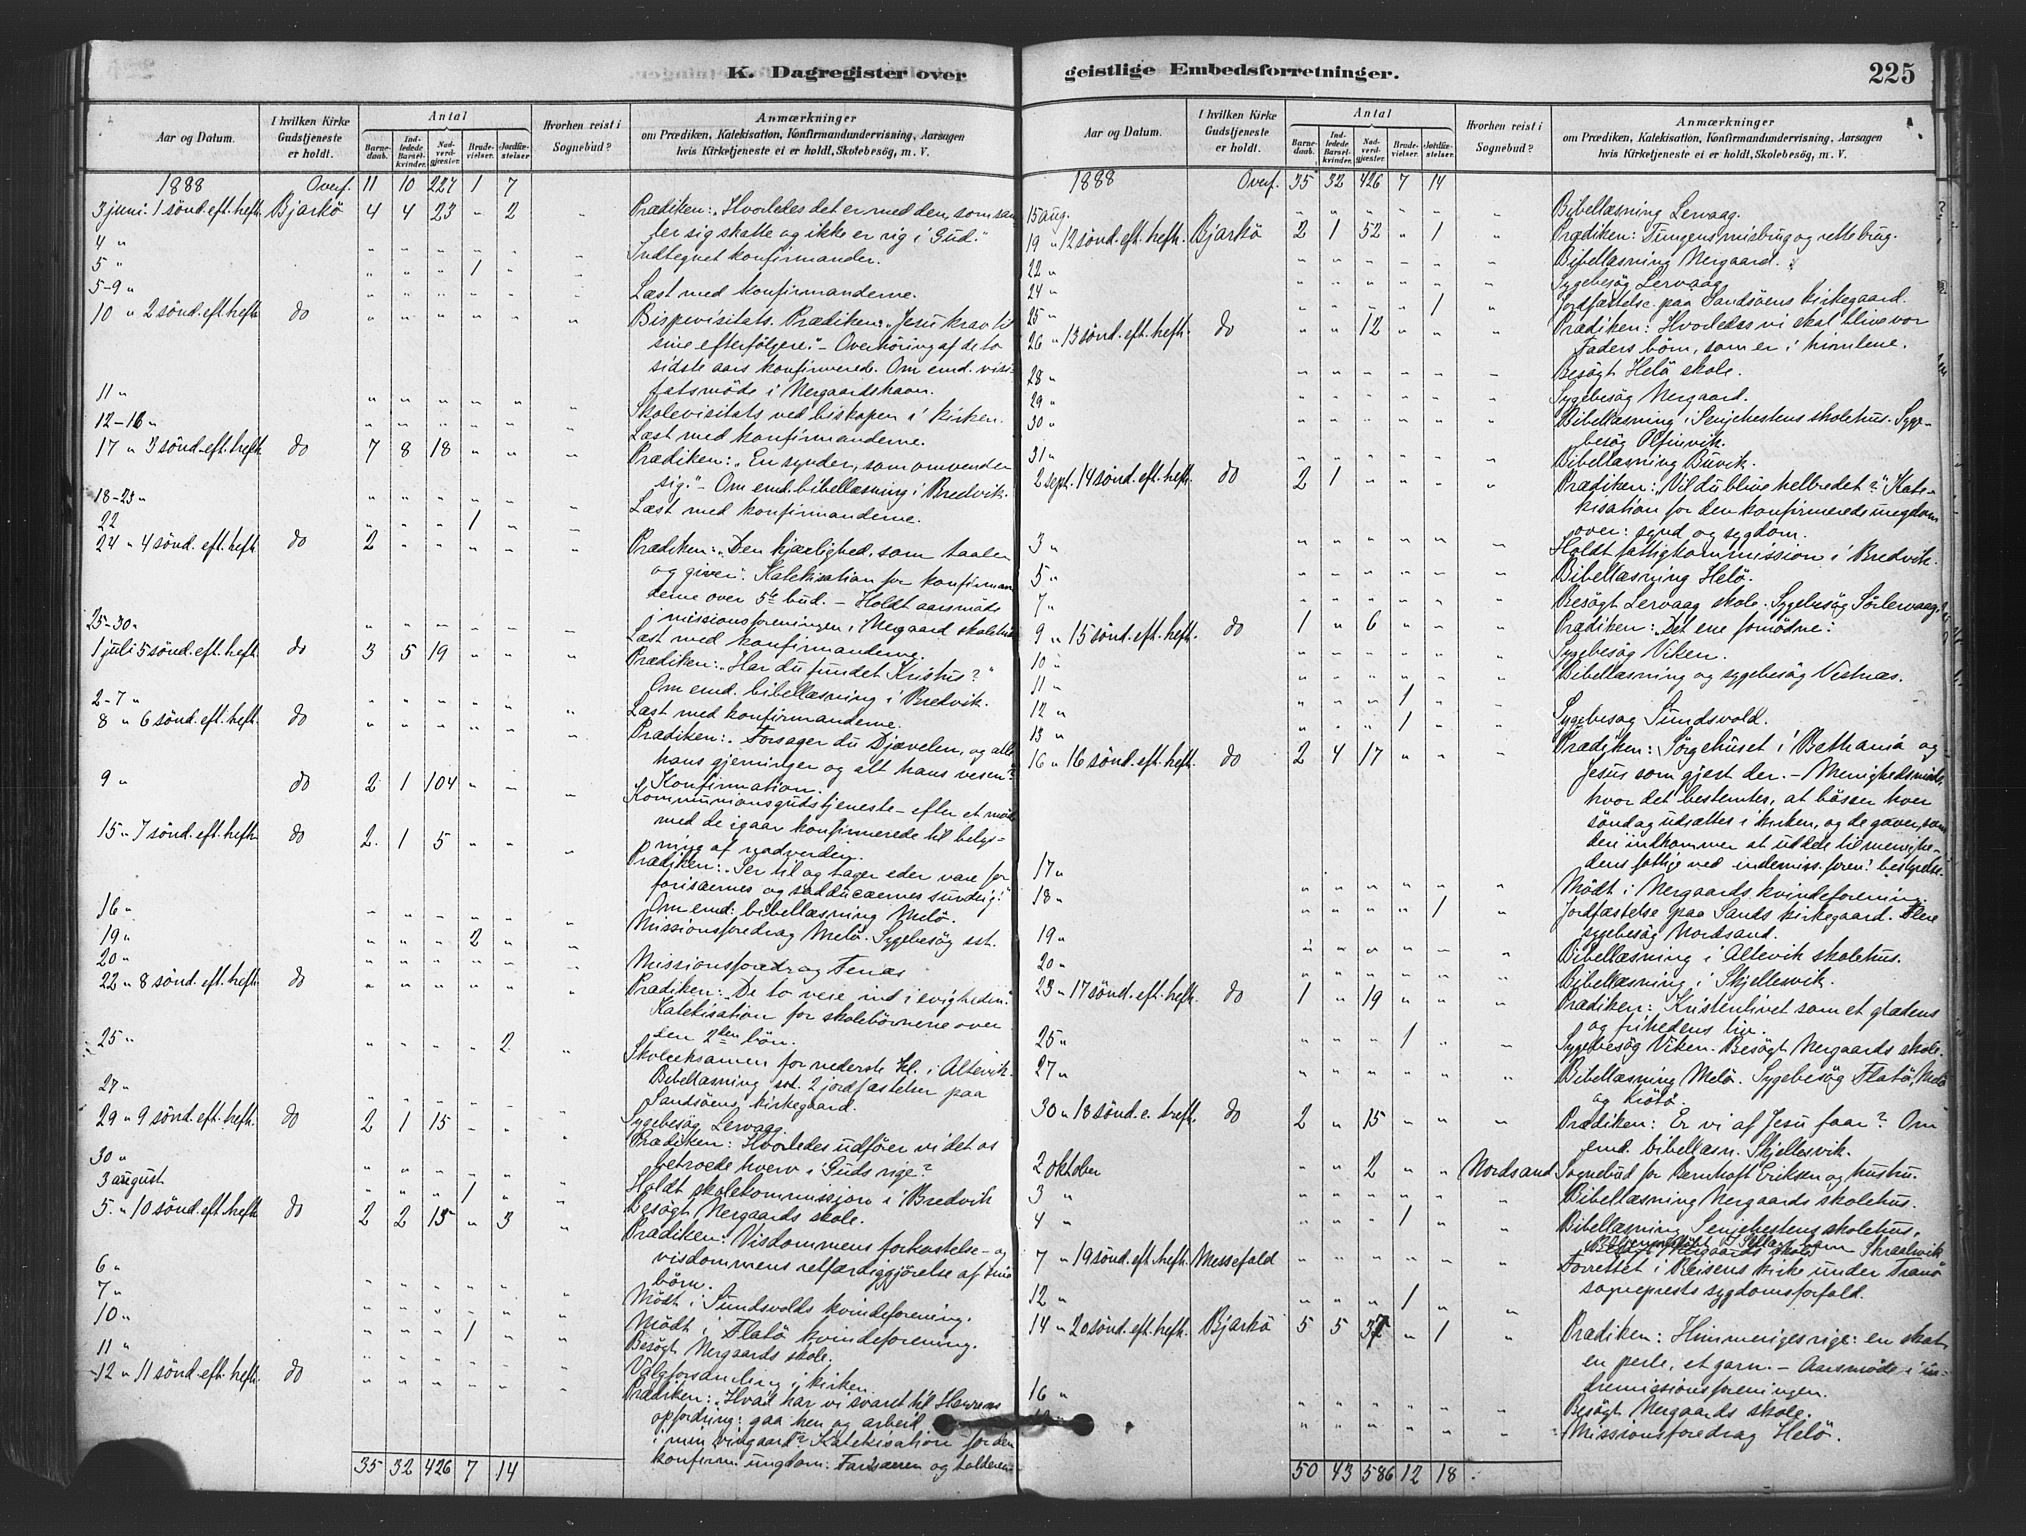 K. Dagregister over
Aar og Datum.
I hvilken Kirke Gudstjeneste er holdt.
Antal
Barnedaab.
Indledede Barselkvinder.
Nadverdgjester.
Brudevielser.
Jordfæstelser
Hvorhen reist i Sognebud?
Anmærkninger
om Prædiken, Katekisation, Konfirmandundervisning, Aarsagen
hvis Kirketjeneste ei er holdt, Skolebesög, m. V.
1888 Overf. 11 10 227 1 7
3 juni. 1 sönd. eft. hefth. Bjarkö 4 4 23 „ 2 „ Prædiken: „Hvorledes det er med den, som sam
4 „ ler sig skatte og ikke er rig i Gud."
5 „ 1 Indtegnet konfirmander.
5-9 „ Læst med konfirmanderne.
10 „ 2 sönd. eft. hefth. do Bispevisitats. Prædiken: „Jesu krav til
sine efterfölgere." - Overhöring af de to
sidste aars konfirmerede. Om emd. visi-
11 „ tatsmöde i Nergaardshavn.
12-16 „ Skolevisitats ved biskopen i kirken.
Læst med konfirmanderne.
17 „ 3 sönd. eft. hefth. do 7 8 18 „ „ „ Prædiken: „En synder, som omvender
sig." - Om emd. bibellæsning i Bredvik.
18-23 „ Læst med konfirmanderne.
22 1
24 „ 4 sönd. eft. hefth. do 2 Prædiken: „Den kjærlighed, som taaler
og giver". Katekisation for konfirman
derne over 5te bud. - Holdt aarsmöde
i missionsforeningen, Nergaard skolehus
25-30 „ Læst med konfirmanderne.
1 juli 5 sönd. eft. heft. do 3 5 19 „ „ „ Prædiken: „Har du fundet Kristus?"
Om emd. bibellæsning i Bredvik.
2-7 „ Læst med konfirmanderne.
8 „ 6 sönd. eft. heft. do Prædiken: „Forsager du Djævelen, og alle
hans gjerninger og alt hans vesen?"
Konfirmation.
9 „ do 2 1 104 „ „ „ Kommunionsgudstjeneste - efter et möde
med de igaar konfirmerede til belys-
ning af nadverden.
15 „ 7 sönd. eft. hefth. do 2 1 5 „ „ „ Prædiken: „Ser til og tager eder vare for
farisæernes og sadducæernes surdeig!"
Om emd: bibellæsning Melö.
16 „ Missionsforedrag Melö. Sygebesög sst.
19 „ 2
20 „ Missionsforedrag
22 „ 8 sönd. eft. hefth. do Prædiken: „De to veie ind i evigheden".
Katekisation for skolebörnene over
den 2den bön.
25 „ 2 Skoleeksamen for nederste kl. i Altevik.
Bibellæsning sst. 2 jordfæstelser paa
Sandsöens kirkegaard.
27 „ Sygebesög Lervaag.
29 „ 9 sönd. eft. hefth. do 2 1 15 „ „ „ Prædiken: Hvorledes udförer vi det os
betroede hverv i Guds rige?
30 „ Holdt skolekommission i Bredvik
3 august 1 Besögt Nergaards skole.
5. „ 10 sönd. eft. hefth. do 2 2 15 „ 3 „ Prædiken: Visdommens forkastelse - og
visdommens retfærdiggjörelse af sine
börn.
6 „ Mödt i Sundsvolds kvindeforening.
7 „ Mödt i Flatö kvindeforening.
10 „ 1 Besögt Nergaards skole.
11 „ Valgforsamling i kirken.
12 „ 11 sönd. eft. hefth. do Prædiken: „Hvad har vi svaret til Herrens
opfordring: gaa hen og arbeid
i min vingaard?" Katekisation for den
konfirm. ungdom: Farisæeren og tolderen.
35 32 426 7 14
geistlige Embedsforretninger. 225
Aar og Datum.
I hvilken Kirke Gudstjeneste er holdt.
Antal
Barnedaab.
Indledede Barselkvinder.
Nadverdgjester.
Brudevielser.
Jordfæstelser.
Hvorhen reist i Sognebud?
Anmærkninger
om Prædiken, Katekisation, Konfirmandundervisning, Aarsagen
hvis Kirketjeneste ei er holdt, Skolebesög, m. V.
1888 Overf. 35 32 426 7 14
15 aug. Bibellæsning Lervaag.
19 „ 12 sönd. eft. hefth. Bjarkö 2 1 52 „ 1 „ Prædiken: Tungens misbrug og rette brug.
22 „ Bibellæsning Nergaard.
24 „ Sygebesög Lervaag.
25 „ 1 Jordfæstelse paa Sandsöens kirkegaard.
26 „ 13 sönd. eft. hefth. do „ „ 12 „ „ „ Prædiken: Hvorledes vi skal blive vor
Faders börn, som er i himlene.
28 „ Besögt Helö skole.
29 „ Sygebesög Nergaard.
30 „ Bibellæsning i Senjehestens skolehus. Syge-
besög
31 „ Bibellæsning Buvik.
2 sept. 14 sönd. eft. hefth. do 2 1 „ „ „ „ Prædiken: „Vil du blive helbredet?" Kate-
kisation for den konfirmerede ungdom
over: synd og sygdom.
3 „ Holdt fattigkommission i Bredvik.
5 „ Bibellæsning Helö.
7 „ Besögt Lervaag skole. Sygebesög Sörlervaag.
9 „ 15 sönd. eft. hefth. do 1 „ 6 „ „ „ Prædiken: „Det ene fornödne".
10 „ Sygebesög Viken.
11 „ 1 Bibellæsning og sygebesög Vestnæs.
12 „ 1
13 „ Sygebesög Sundsvold.
16 „ 16 sönd. eft. hefth. do 2 4 17 „ „ „ Prædiken: Sörgehuset i Bethania og
Jesus som gjest der. - Menighedsmöde,
hvor det bestemtes, at bösser hver
söndag udsættes i kirken, og de gaver, som
deri indkommer at uddele til menighe-
dens fattige ved indremiss. foren. bestyrelse.
17 „ Mödt i Nergaards kvindeforening.
18 „ 1 Jordfæstelse paa Sands kirkegaard. Flere
sygebesög Nordsand.
19 „ Bibellæsning i Altevik skolehus.
20 „ Bibellæsning i Skjellesvik.
23 „ 17 sönd. eft. hefth. do 1 „ 19 „ „ „ Prædiken: Kristenlivet som et glædens
og frihedens liv.
25 „ 1 Sygebesög Viken. Besögt Nergaards skole.
27 „ Bibellæsning Melö. Sygebesög Flatö, Melö
og Krötö.
30 „ 18 sönd. e. treft. do 2 „ 15 „ „ „ Prædiken: Er vi af Jesu faar? Om
emd. bibellæsn. Skjellesvik.
2 oktober „ „ 2 „ „ Nordsand Sognebud for Bernhoft Eriksen og hustru.
3 „ Bibellæsning Nergaards skolehus.
4 „ 1 Bibellæsning Senjehestens skolehus.
7 „ 19 sönd. eft. hefth. Messefald Forrettet i Reisens kirke under Tranö
sogneprests sygdomsforfald.
12 „ 1
14 „ 20 sönd. eft. hefth. Bjarkö 5 5 37 „ 1 „ Prædiken: Himmeriges rige: en skat
en perle, et garn. - Aarsmöde i in-
dremissionsforeningen.
16 „ Besögt Nergaards skole.
Missionsforedrag Helö.
50 43 586 12 18